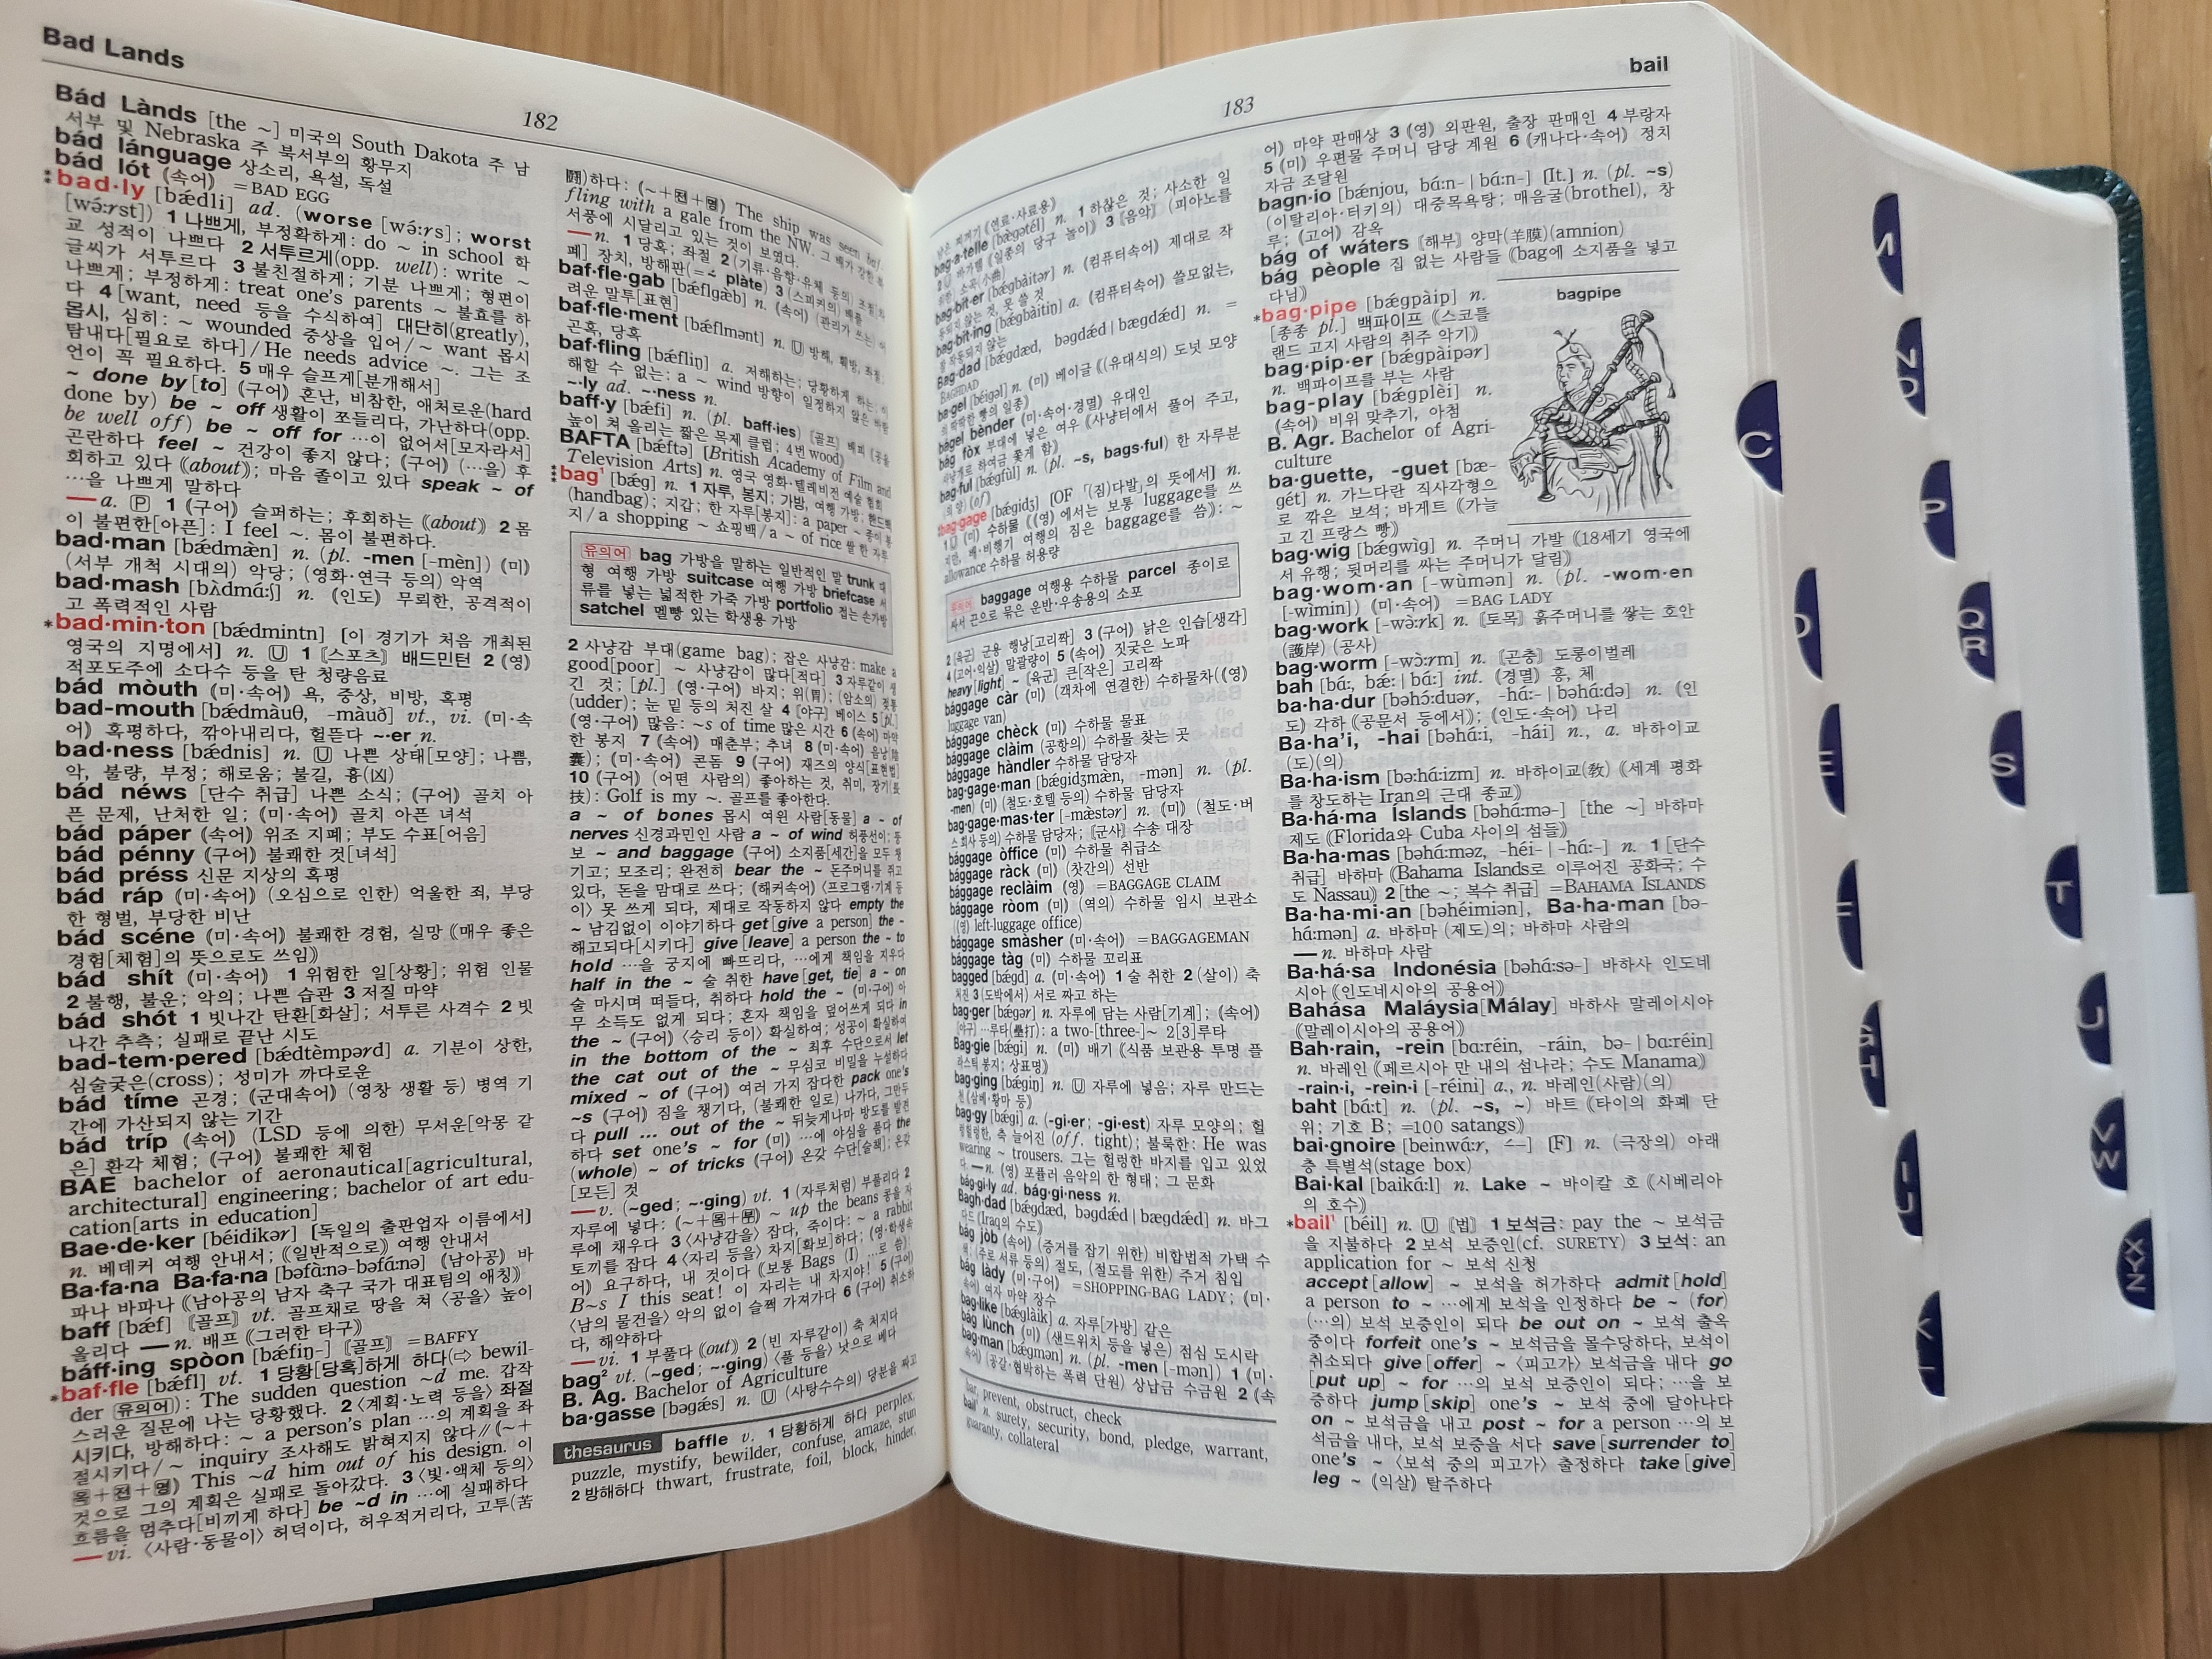 Bad Lands
182
Bád Lànds [the ~] 미국의 South Dakota 주 남
서부 및 Nebraska 주 북서부의 황무지
bád lánguage 상소리, 욕설, 독설
bád lót (속어) =BAD EGG
⁑bad·ly [bǽdli] ad. (worse [wə́ːrs]; worst
[wə́ːrst]) 1 나쁘게, 부정확하게: do ~ in school 학
교 성적이 나쁘다 2 서투르게(opp. well): write ~
글씨가 서투르다 3 불친절하게; 기분 나쁘게; 형편이
나쁘게; 부정하게: treat one's parents ~ 불효를 하
다 4 [want, need 등을 수식하여] 대단히(greatly),
몹시, 심히: ~ wounded 중상을 입어/~ want 몹시
탐내다[필요로 하다]/He needs advice ~. 그는 조
언이 꼭 필요하다. 5 매우 슬프게[분개해서]
~ done by[to] (구어) 혼난, 비참한, 애처로운(hard
done by) be ~ off 생활이 쪼들리다, 가난하다(opp.
be well off) be ~ off for …이 없어서[모자라서]
곤란하다 feel ~ 건강이 좋지 않다; (구어) (…을) 후
회하고 있다 《about》; 마음 졸이고 있다 speak ~ of
…을 나쁘게 말하다
━a. Ⓟ 1 (구어) 슬퍼하는; 후회하는 《about》 2 몸
이 불편한[아픈]: I feel ~. 몸이 불편하다.
bad·man [bǽdmæ̀n] n. (pl. -men [-mèn]) (미)
(서부 개척 시대의) 악당; (영화·연극 등의) 악역
bad·mash [bʌ̀dmɑ́ːʃ] n. (인도) 무뢰한, 공격적이
고 폭력적인 사람
*bad·min·ton [bǽdmintn] [이 경기가 처음 개최된
영국의 지명에서] n. Ⓤ 1 〖스포츠〗 배드민턴 2 (영)
적포도주에 소다수 등을 탄 청량음료
bád mòuth (미·속어) 욕, 중상, 비방, 혹평
bad-mouth [bǽdmàuθ, -màuð] vt., vi. (미·속
어) 혹평하다, 깎아내리다, 헐뜯다 ~·er n.
bad·ness [bǽdnis] n. Ⓤ 나쁜 상태[모양]; 나쁨,
악, 불량, 부정; 해로움; 불길, 흉(凶)
bád néws [단수 취급] 나쁜 소식; (구어) 골치 아
픈 문제, 난처한 일; (미·속어) 골치 아픈 녀석
bád páper (속어) 위조 지폐; 부도 수표[어음]
bád pénny (구어) 불쾌한 것[녀석]
bád préss 신문 지상의 혹평
bád ráp (미·속어) (오심으로 인한) 억울한 죄, 부당
한 형벌, 부당한 비난
bád scéne (미·속어) 불쾌한 경험, 실망 《매우 좋은
경험[체험]의 뜻으로도 쓰임》
bád shít (미·속어) 1 위험한 일[상황]; 위험 인물
2 불행, 불운; 악의; 나쁜 습관 3 저질 마약
bád shót 1 빗나간 탄환[화살]; 서투른 사격수 2 빗
나간 추측; 실패로 끝난 시도
bad-tem·pered [bǽdtèmpərd] a. 기분이 상한,
심술궂은(cross); 성미가 까다로운
bád tíme 곤경; (군대속어) (영창 생활 등) 병역 기
간에 가산되지 않는 기간
bád tríp (속어) (LSD 등에 의한) 무서운[악몽 같
은] 환각 체험; (구어) 불쾌한 체험
BAE bachelor of aeronautical[agricultural,
architectural] engineering; bachelor of art edu-
cation[arts in education]
Bae·de·ker [béidikər] [독일의 출판업자 이름에서]
n. 베데커 여행 안내서; 《일반적으로》 여행 안내서
Ba·fa·na Ba·fa·na [bəfɑ̀ːnə-bəfɑ́ːnə] (남아공) 바
파나 바파나 《남아공의 남자 축구 국가 대표팀의 애칭》
baff [bǽf] 〖골프〗 vt. 골프채로 땅을 쳐 〈공을〉 높이
올리다 ━n. 배프 《그러한 타구》
báff·ing spòon [bǽfiŋ-] 〖골프〗 =BAFFY
*baf·fle [bǽfl] vt. 1 당황[당혹]하게 하다(⇨ bewil-
der 유의어): The sudden question ~d me. 갑작
스러운 질문에 나는 당황했다. 2 〈계획·노력 등을〉 좌절
시키다, 방해하다: ~ a person's plan …의 계획을 좌
절시키다/~ inquiry 조사해도 밝혀지지 않다∥(~+
목+전+명) This ~d him out of his design. 이
것으로 그의 계획은 실패로 돌아갔다. 3 〈빛·액체 등의〉
흐름을 멈추다[비끼게 하다] be ~d in …에 실패하다
━vi. 〈사람·동물이〉 허덕이다, 허우적거리다, 고투(苦
鬪)하다: (~+전+명) The ship was seen baf-
fling with a gale from the NW. 그 배가 강한 북
서풍에 시달리고 있는 것이 보였다.
━n. 1 당혹; 좌절 2 (기류·음향·유체 등의)
폐] 장치, 방해판(= plàte) 3 (스피커의) 배플
baf·fle·gab [bǽflgæ̀b] n. (속어) (관리가 쓰는) 어
려운 말투[표현]
baf·fle·ment [bǽflmənt] n. Ⓤ 방해, 훼방, 좌절;
곤혹, 당혹
baf·fling [bǽfliŋ] a. 저해하는; 당황하게 하는; 이
해할 수 없는: a ~ wind 방향이 일정하지 않은 바람
~·ly ad. ~·ness n.
baff·y [bǽfi] n. (pl. baff·ies) 〖골프〗 배피 《공을
높이 쳐 올리는 짧은 목제 클럽; 4번 wood》
BAFTA [bǽftə] [British Academy of Film and
Television Arts] n. 영국 영화·텔레비전 예술 협회
⁑bag¹ [bǽg] n. 1 자루, 봉지; 가방, 여행 가방, 핸드백
(handbag); 지갑; 한 자루[봉지]: a paper ~ 종이 봉
지/a shopping ~ 쇼핑백/a ~ of rice 쌀 한 자루
유의어 bag 가방을 말하는 일반적인 말 trunk 대
형 여행 가방 suitcase 여행 가방 briefcase 서
류를 넣는 넓적한 가죽 가방 portfolio 접는 손가방
satchel 멜빵 있는 학생용 가방
2 사냥감 부대(game bag); 잡은 사냥감: make a
good[poor] ~ 사냥감이 많다[적다] 3 자루같이 생
긴 것; [pl.] (영·구어) 바지; 위(胃); (암소의) 젖통
(udder); 눈 밑 등의 처진 살 4 〖야구〗 베이스 5 [pl.]
(영·구어) 많음: ~s of time 많은 시간 6 (속어) 마약
한 봉지 7 (속어) 매춘부; 추녀 8 (미·속어) 음낭(陰
囊); (미·속어) 콘돔 9 (구어) 재즈의 양식[표현법]
10 (구어) (어떤 사람의) 좋아하는 것, 취미, 장기(長
技): Golf is my ~. 골프를 좋아한다.
a ~ of bones 몹시 여윈 사람[동물] a ~ of
nerves 신경과민인 사람 a ~ of wind 허풍선이; 뚱
보 ~ and baggage (구어) 소지품[세간]을 모두 챙
기고; 모조리; 완전히 bear the ~ 돈주머니를 쥐고
있다, 돈을 맘대로 쓰다; (해커속어) 〈프로그램·기계 등
이〉 못 쓰게 되다, 제대로 작동하지 않다 empty the
~ 남김없이 이야기하다 get[give a person] the ~
해고되다[시키다] give[leave] a person the ~ to
hold …을 궁지에 빠뜨리다, …에게 책임을 지우다
half in the ~ 술 취한 have[get, tie] a ~ on
술 마시며 떠들다, 취하다 hold the ~ (미·구어) 아
무 소득도 없게 되다; 혼자 책임을 덮어쓰게 되다 in
the ~ (구어) 〈승리 등이〉 확실하여; 성공이 확실하여
in the bottom of the ~ 최후 수단으로서 let
the cat out of the ~ 무심코 비밀을 누설하다
mixed ~ of (구어) 여러 가지 잡다한 pack one's
~s (구어) 짐을 챙기다, (불쾌한 일로) 나가다, 그만두
다 pull ... out of the ~ 뒤늦게나마 방도를 발견
하다 set one's ~ for (미) …에 야심을 품다 the
(whole) ~ of tricks (구어) 온갖 수단[술책]; 온갖
[모든] 것
━v. (~ged; ~·ging) vt. 1 (자루처럼) 부풀리다 2
자루에 넣다: (~+목+부) ~ up the beans 콩을 자
루에 채우다 3 〈사냥감을〉 잡다, 죽이다: ~ a rabbit
토끼를 잡다 4 〈자리 등을〉 차지[확보]하다; (영·학생속
어) 요구하다, 내 것이다 《보통 Bags (I) …로 씀》:
B~s I this seat! 이 자리는 내 차지야! 5 (구어)
〈남의 물건을〉 악의 없이 슬쩍 가져가다 6 (구어) 취소하
다, 해약하다
━vi. 1 부풀다 《out》 2 (빈 자루같이) 축 처지다
bag² vt. (~ged; ~·ging) 〈풀 등을〉 낫으로 베다
B. Ag. Bachelor of Agriculture
ba·gasse [bəgǽs] n. Ⓤ (사탕수수의) 당분을 짜고
thesaurus baffle v. 1 당황하게 하다 perplex,
puzzle, mystify, bewilder, confuse, amaze, stun
2 방해하다 thwart, frustrate, foil, block, hinder,
183
bail
남은 찌꺼기 《연료·사료용》
bag·a·telle [bæ̀gətél] n. 1 하찮은 것; 사소한 일
2 Ⓤ 바가텔 《일종의 당구 놀이》 3 〖음악〗 (피아노를
위한) 소곡(小曲)
bag·bit·er [bǽgbàitər] n. (컴퓨터속어) 제대로 작
동되지 않는 것, 못 쓸 것
bag·bit·ing [bǽgbàitiŋ] a. (컴퓨터속어) 쓸모없는,
잘 작동되지 않는
Bag·dad [bǽgdæd, bəgdǽd | bægdǽd] n. =
BAGHDAD
ba·gel [béigəl] n. (미) 베이글 《(유대식의) 도넛 모양
의 딱딱한 빵의 일종》
bágel bènder (미·속어·경멸) 유대인
bág fòx 부대에 넣은 여우 《사냥터에서 풀어 주고,
사냥개로 하여금 쫓게 함》
bag·ful [bǽgfùl] n. (pl. ~s, bags·ful) 한 자루분
(의 양) 《of》
⁑bag·gage [bǽgidʒ] [OF 「(짐)다발」의 뜻에서] n.
1 Ⓤ (미) 수하물 《(영)에서는 보통 luggage를 쓰
지만, 배·비행기 여행의 짐은 baggage를 씀》: ~
allowance 수하물 허용량
유의어 baggage 여행용 수하물 parcel 종이로
싸서 끈으로 묶은 운반·우송용의 소포
2 〖육군〗 군용 행낭[고리짝] 3 (구어) 낡은 인습[생각]
4 (고어·익살) 말괄량이 5 (속어) 짓궂은 노파
heavy[light] ~ 〖육군〗 큰[작은] 고리짝
bággage càr (미) (객차에 연결한) 수하물차((영)
luggage van)
bággage chèck (미) 수하물 물표
bággage clàim (공항의) 수하물 찾는 곳
bággage hàndler 수하물 담당자
bag·gage·man [bǽgidʒmæ̀n, -mən] n. (pl.
-men) (미) (철도·호텔 등의) 수하물 담당자
bag·gage·mas·ter [-mæ̀stər] n. (미) (철도·버
스 회사 등의) 수하물 담당자; 〖군사〗 수송 대장
bággage òffice (미) 수하물 취급소
bággage ràck (미) (찻간의) 선반
bággage reclàim (영) =BAGGAGE CLAIM
bággage ròom (미) (역의) 수하물 임시 보관소
((영) left-luggage office)
bággage smàsher (미·속어) =BAGGAGEMAN
bággage tàg (미) 수하물 꼬리표
bagged [bǽgd] a. (미·속어) 1 술 취한 2 (살이) 축
처진 3 (도박에서) 서로 짜고 하는
bag·ger [bǽgər] n. 자루에 담는 사람[기계]; (속어)
〖야구〗 …루타(壘打): a two-[three-]~ 2[3]루타
Bag·gie [bǽgi] n. (미) 배기 《식품 보관용 투명 플
라스틱 봉지; 상표명》
bag·ging [bǽgiŋ] n. Ⓤ 자루에 넣음; 자루 만드는
천 《삼베·황마 등》
bag·gy [bǽgi] a. (-gi·er; -gi·est) 자루 모양의; 헐
렁헐렁한, 축 늘어진(off. tight); 불룩한: He was
wearing ~ trousers. 그는 헐렁한 바지를 입고 있었
다. ━n. (영) 포퓰러 음악의 한 형태; 그 문화
bág·gi·ly ad. bág·gi·ness n.
Bagh·dad [bǽgdæd, bəgdǽd | bægdǽd] n. 바그
다드 《Iraq의 수도》
bág jòb (속어) (증거를 잡기 위한) 비합법적 가택 수
색; (주로 서류 등의) 절도, (절도를 위한) 주거 침입
bág làdy (미·구어) =SHOPPING-BAG LADY; (미·
속어) 여자 마약 장수
bag·like [bǽglàik] a. 자루[가방] 같은
bág lùnch (미) (샌드위치 등을 넣은) 점심 도시락
bag·man [bǽgmən] n. (pl. -men [-mən]) 1 (미·
속어) (공갈·협박하는 폭력 단원) 상납금 수금원 2 (속
bar, prevent, obstruct, check
bail¹ n. surety, security, bond, pledge, warrant,
guaranty, collateral
어) 마약 판매상 3 (영) 외판원, 출장 판매인 4 부랑자
5 (미) 우편물 주머니 담당 계원 6 (캐나다·속어) 정치
자금 조달원
bagn·io [bǽnjou, bɑ́ːn- | bɑ́ːn-] [It.] n. (pl. ~s)
(이탈리아·터키의) 대중목욕탕; 매음굴(brothel), 창
루; (고어) 감옥
bág of wáters 〖해부〗 양막(羊膜)(amnion)
bág pèople 집 없는 사람들 《bag에 소지품을 넣고
다님》
*bag·pipe [bǽgpàip] n.
[종종 pl.] 백파이프 《스코틀
랜드 고지 사람의 취주 악기》
bag·pip·er [bǽgpàipər]
n. 백파이프를 부는 사람
bag-play [bǽgplèi] n.
(속어) 비위 맞추기, 아첨
B. Agr. Bachelor of Agri-
culture
ba·guette, -guet [bæ-
gét] n. 가느다란 직사각형으
로 깎은 보석; 바게트 《가늘
고 긴 프랑스 빵》
bagpipe
bag·wig [bǽgwìg] n. 주머니 가발 《18세기 영국에
서 유행; 뒷머리를 싸는 주머니가 달림》
bag·wom·an [-wùmən] n. (pl. -wom·en
[-wìmin]) (미·속어) =BAG LADY
bag·work [-wə̀ːrk] n. 〖토목〗 흙주머니를 쌓는 호안
(護岸) (공사)
bag·worm [-wə̀ːrm] n. 〖곤충〗 도롱이벌레
bah [bɑ́ː, bǽː | bɑ́ː] int. (경멸) 흥, 체
ba·ha·dur [bəhɔ́ːduər, -hɑ́ː- | bəhɑ́ːdə] n. (인
도) 각하 《공문서 등에서》; (인도·속어) 나리
Ba·ha'i, -hai [bəhɑ́ːi, -hái] n., a. 바하이교
(도)(의)
Ba·ha·ism [bəːhɑ́ːizm] n. 바하이교(敎) 《세계 평화
를 창도하는 Iran의 근대 종교》
Ba·há·ma Íslands [bəhɑ́ːmə-] [the ~] 바하마
제도 《Florida와 Cuba 사이의 섬들》
Ba·ha·mas [bəhɑ́ːməz, -héi- | -hɑ́ː-] n. 1 [단수
취급] 바하마 《Bahama Islands로 이루어진 공화국; 수
도 Nassau》 2 [the ~; 복수 취급] =BAHAMA ISLANDS
Ba·ha·mi·an [bəhéimiən], Ba·ha·man [bə-
hɑ́ːmən] a. 바하마 (제도)의; 바하마 사람의
━n. 바하마 사람
Ba·há·sa Indonésia [bəhɑ́ːsə-] 바하사 인도네
시아 《인도네시아의 공용어》
Bahása Maláysia[Málay] 바하사 말레이시아
《말레이시아의 공용어》
Bah·rain, -rein [bɑːréin, -ráin, bə- | bɑːréin]
n. 바레인 《페르시아 만 내의 섬나라; 수도 Manama》
-rain·i, -rein·i [-réini] a., n. 바레인(사람)(의)
baht [bɑ́ːt] n. (pl. ~s, ~) 바트 《타이의 화폐 단
위; 기호 B; =100 satangs》
bai·gnoire [beinwɑ́ːr, ⸺] [F] n. (극장의) 아래
층 특별석(stage box)
Bai·kal [baikɑ́ːl] n. Lake ~ 바이칼 호 《시베리아
의 호수》
*bail¹ [béil] n. Ⓤ 〖법〗 1 보석금: pay the ~ 보석금
을 지불하다 2 보석 보증인(cf. SURETY) 3 보석: an
application for ~ 보석 신청
accept[allow] ~ 보석을 허가하다 admit[hold]
a person to ~ …에게 보석을 인정하다 be ~ (for)
(…의) 보석 보증인이 되다 be out on ~ 보석 출옥
중이다 forfeit one's ~ 보석금을 몰수당하다, 보석이
취소되다 give[offer] ~ 〈피고가〉 보석금을 내다 go
[put up] ~ for …의 보석 보증인이 되다; …을 보
증하다 jump[skip] one's ~ 보석 중에 달아나다
on ~ 보석금을 내고 post ~ for a person …의 보
석금을 내다, 보석 보증을 서다 save[surrender to]
one's ~ 〈보석 중의 피고가〉 출정하다 take[give]
leg ~ (익살) 탈주하다
C
D
E
F
GH
IJ
K
L
M
N
O
P
QR
S
T
U
VW
XYZ